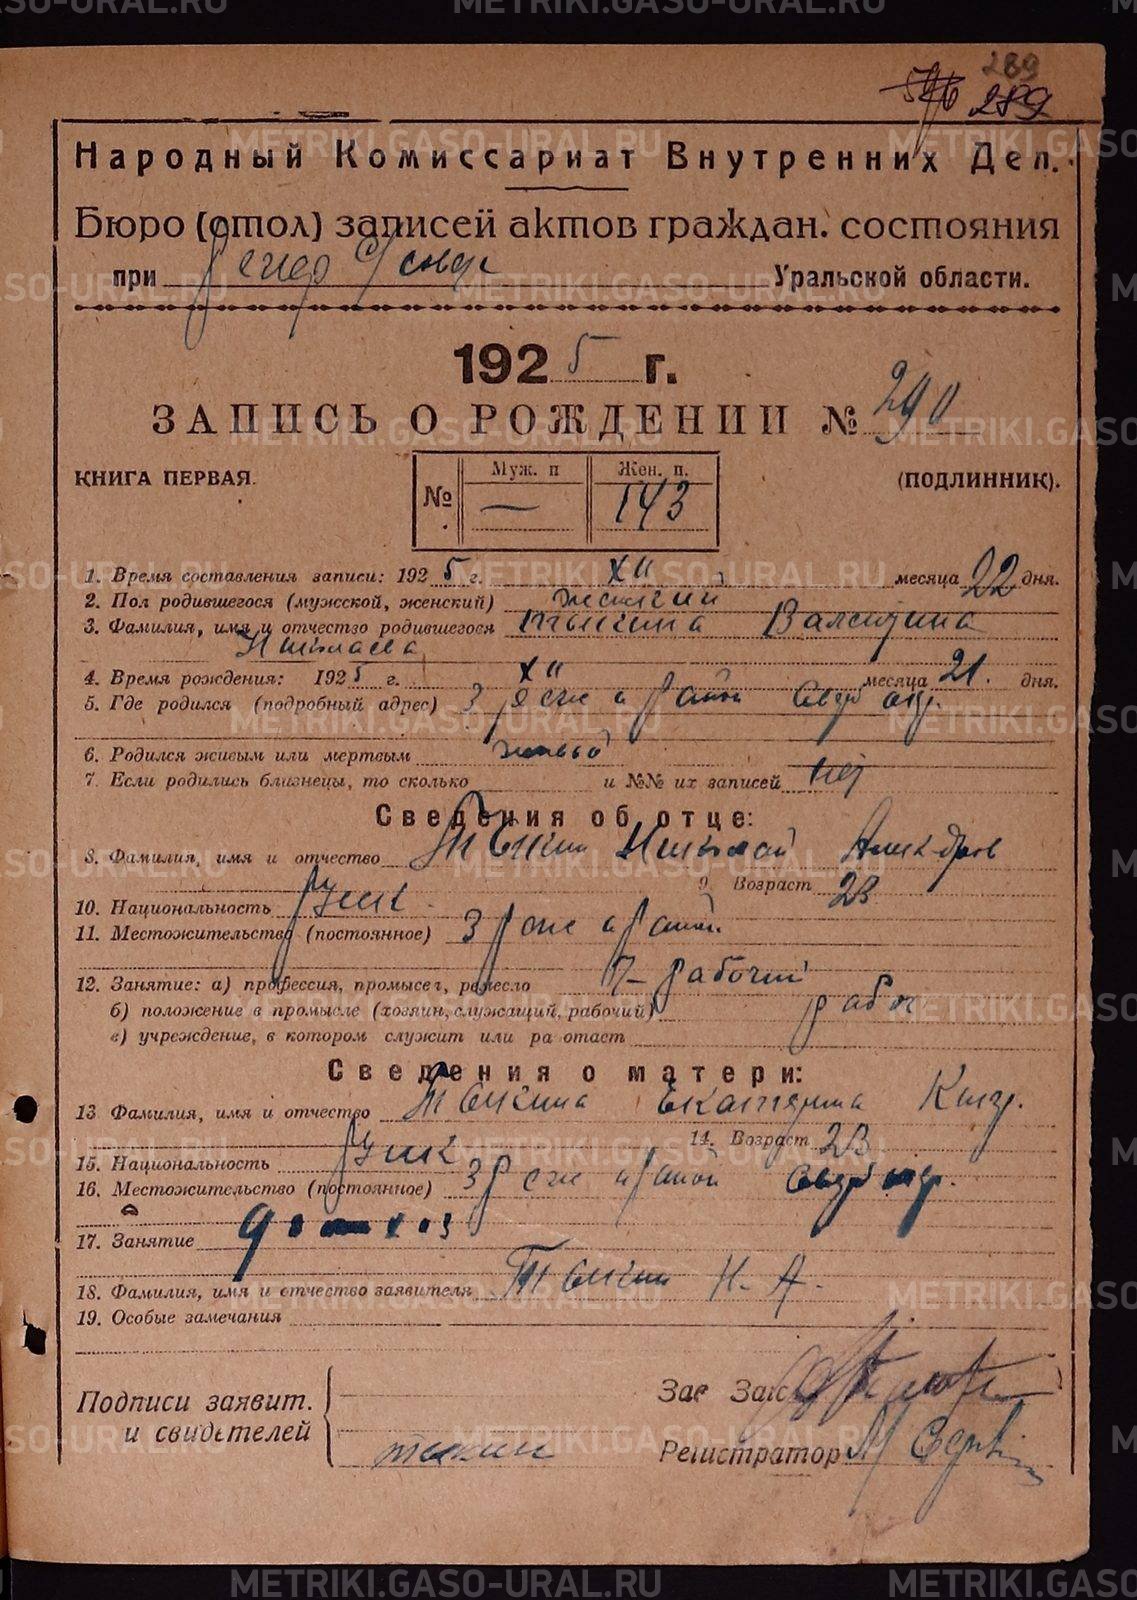 289
289
Народный Комиссариат Внутренних Дел.
Бюро (стол) записей актов граждан. состояния
при Уральской области.
1925 г.
ЗАПИСЬ О РОЖДЕНИИ № 290
КНИГА ПЕРВАЯ.
№ Муж. п — Жен. п. 143
(ПОДЛИННИК).
1. Время составления записи: 1925 г. XII месяца 22 дня.
2. Пол родившегося (мужской, женский) женский
3. Фамилия, имя и отчество родившегося Валентина
4. Время рождения: 1925 г. XII месяца 21. дня.
5. Где родился (подробный адрес) район
6. Родился живым или мертвым живой
7. Если родились близнецы, то сколько и №№ их записей нет
Сведения об отце:
8. Фамилия, имя и отчество Николай
9. Возраст 23
10. Национальность
11. Местожительство (постоянное) 3 район
12. Занятие: а) профессия, промысел, ремесло рабочий
б) положение в промысле (хозяин, служащий, рабочий) рабоч
в) учреждение, в котором служит или ра отает
Сведения о матери:
13 Фамилия, имя и отчество Екатерина
14. Возраст 23
15. Национальность
16. Местожительство (постоянное) 3 район
17. Занятие
18. Фамилия, имя и отчество заявителя Н. А.
19. Особые замечания
Подписи заявит.
и свидетелей
Зав Загс
Регистратор
METRIKI.GASO-URAL.RU